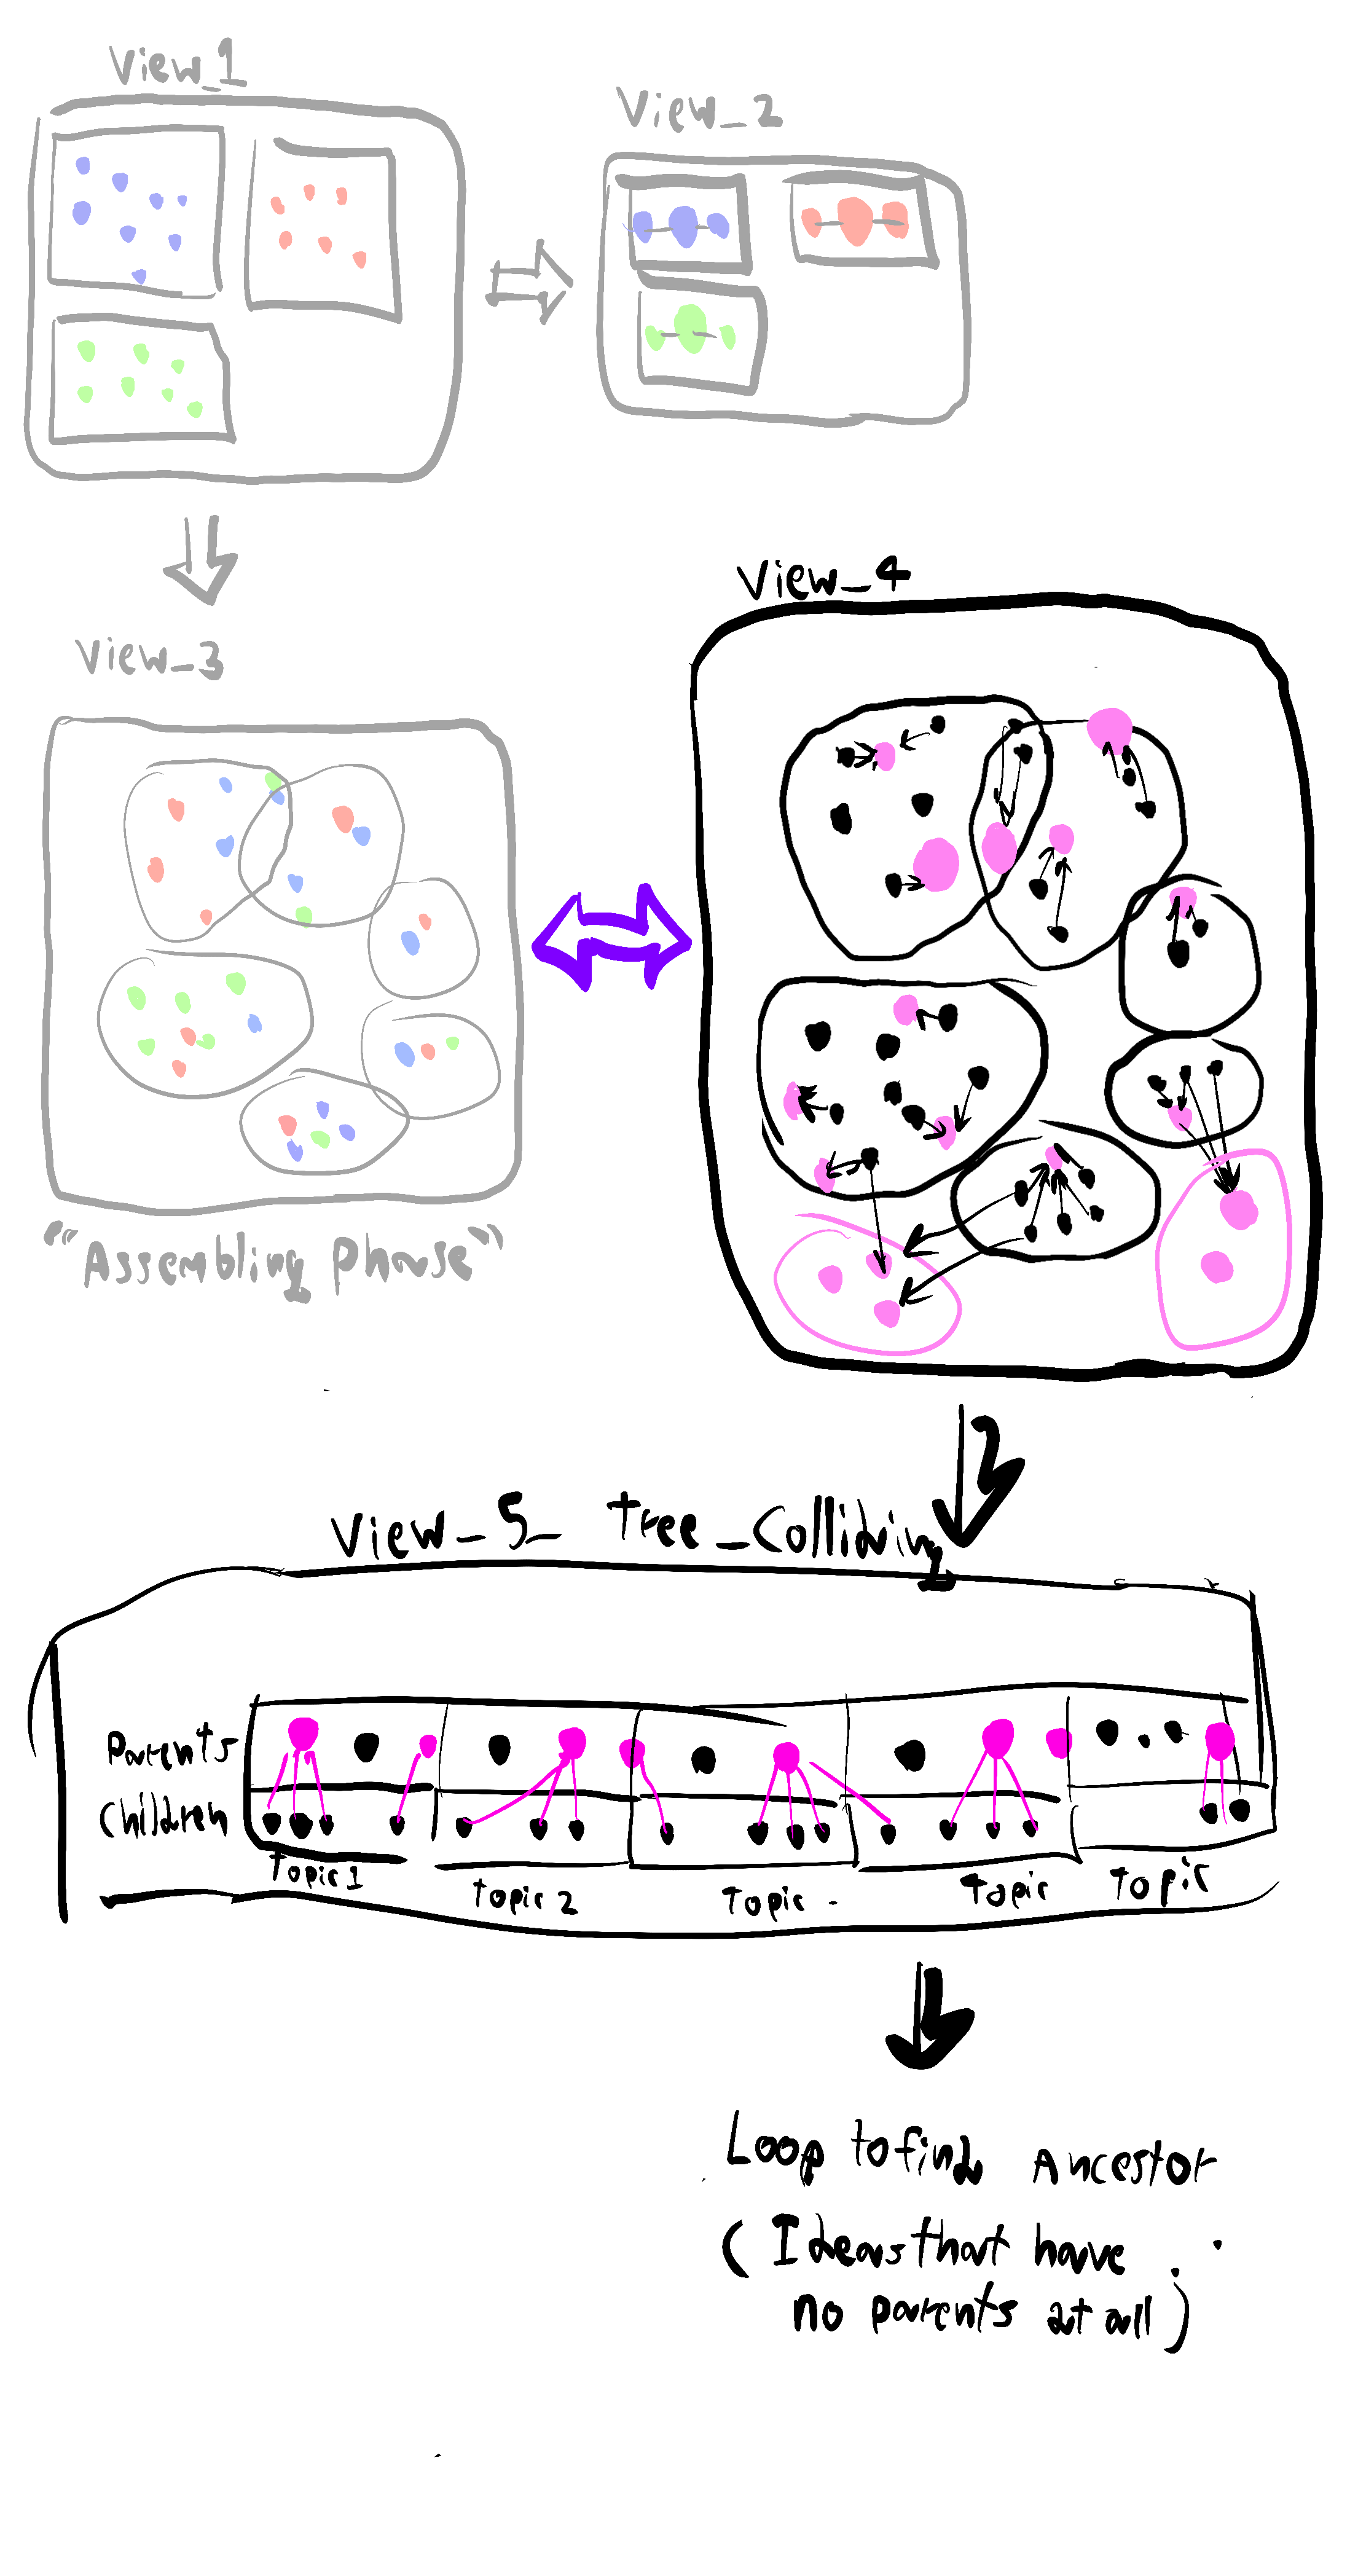 View_1
View_2
View_3
"Assembling Phase"
View_4
View_5_ Tree_Colliding
Parents
Children
Topic 1
Topic 2
Topic -
Topic
Topic
Loop to find Ancestor
(Ideas that have
no parents at all)